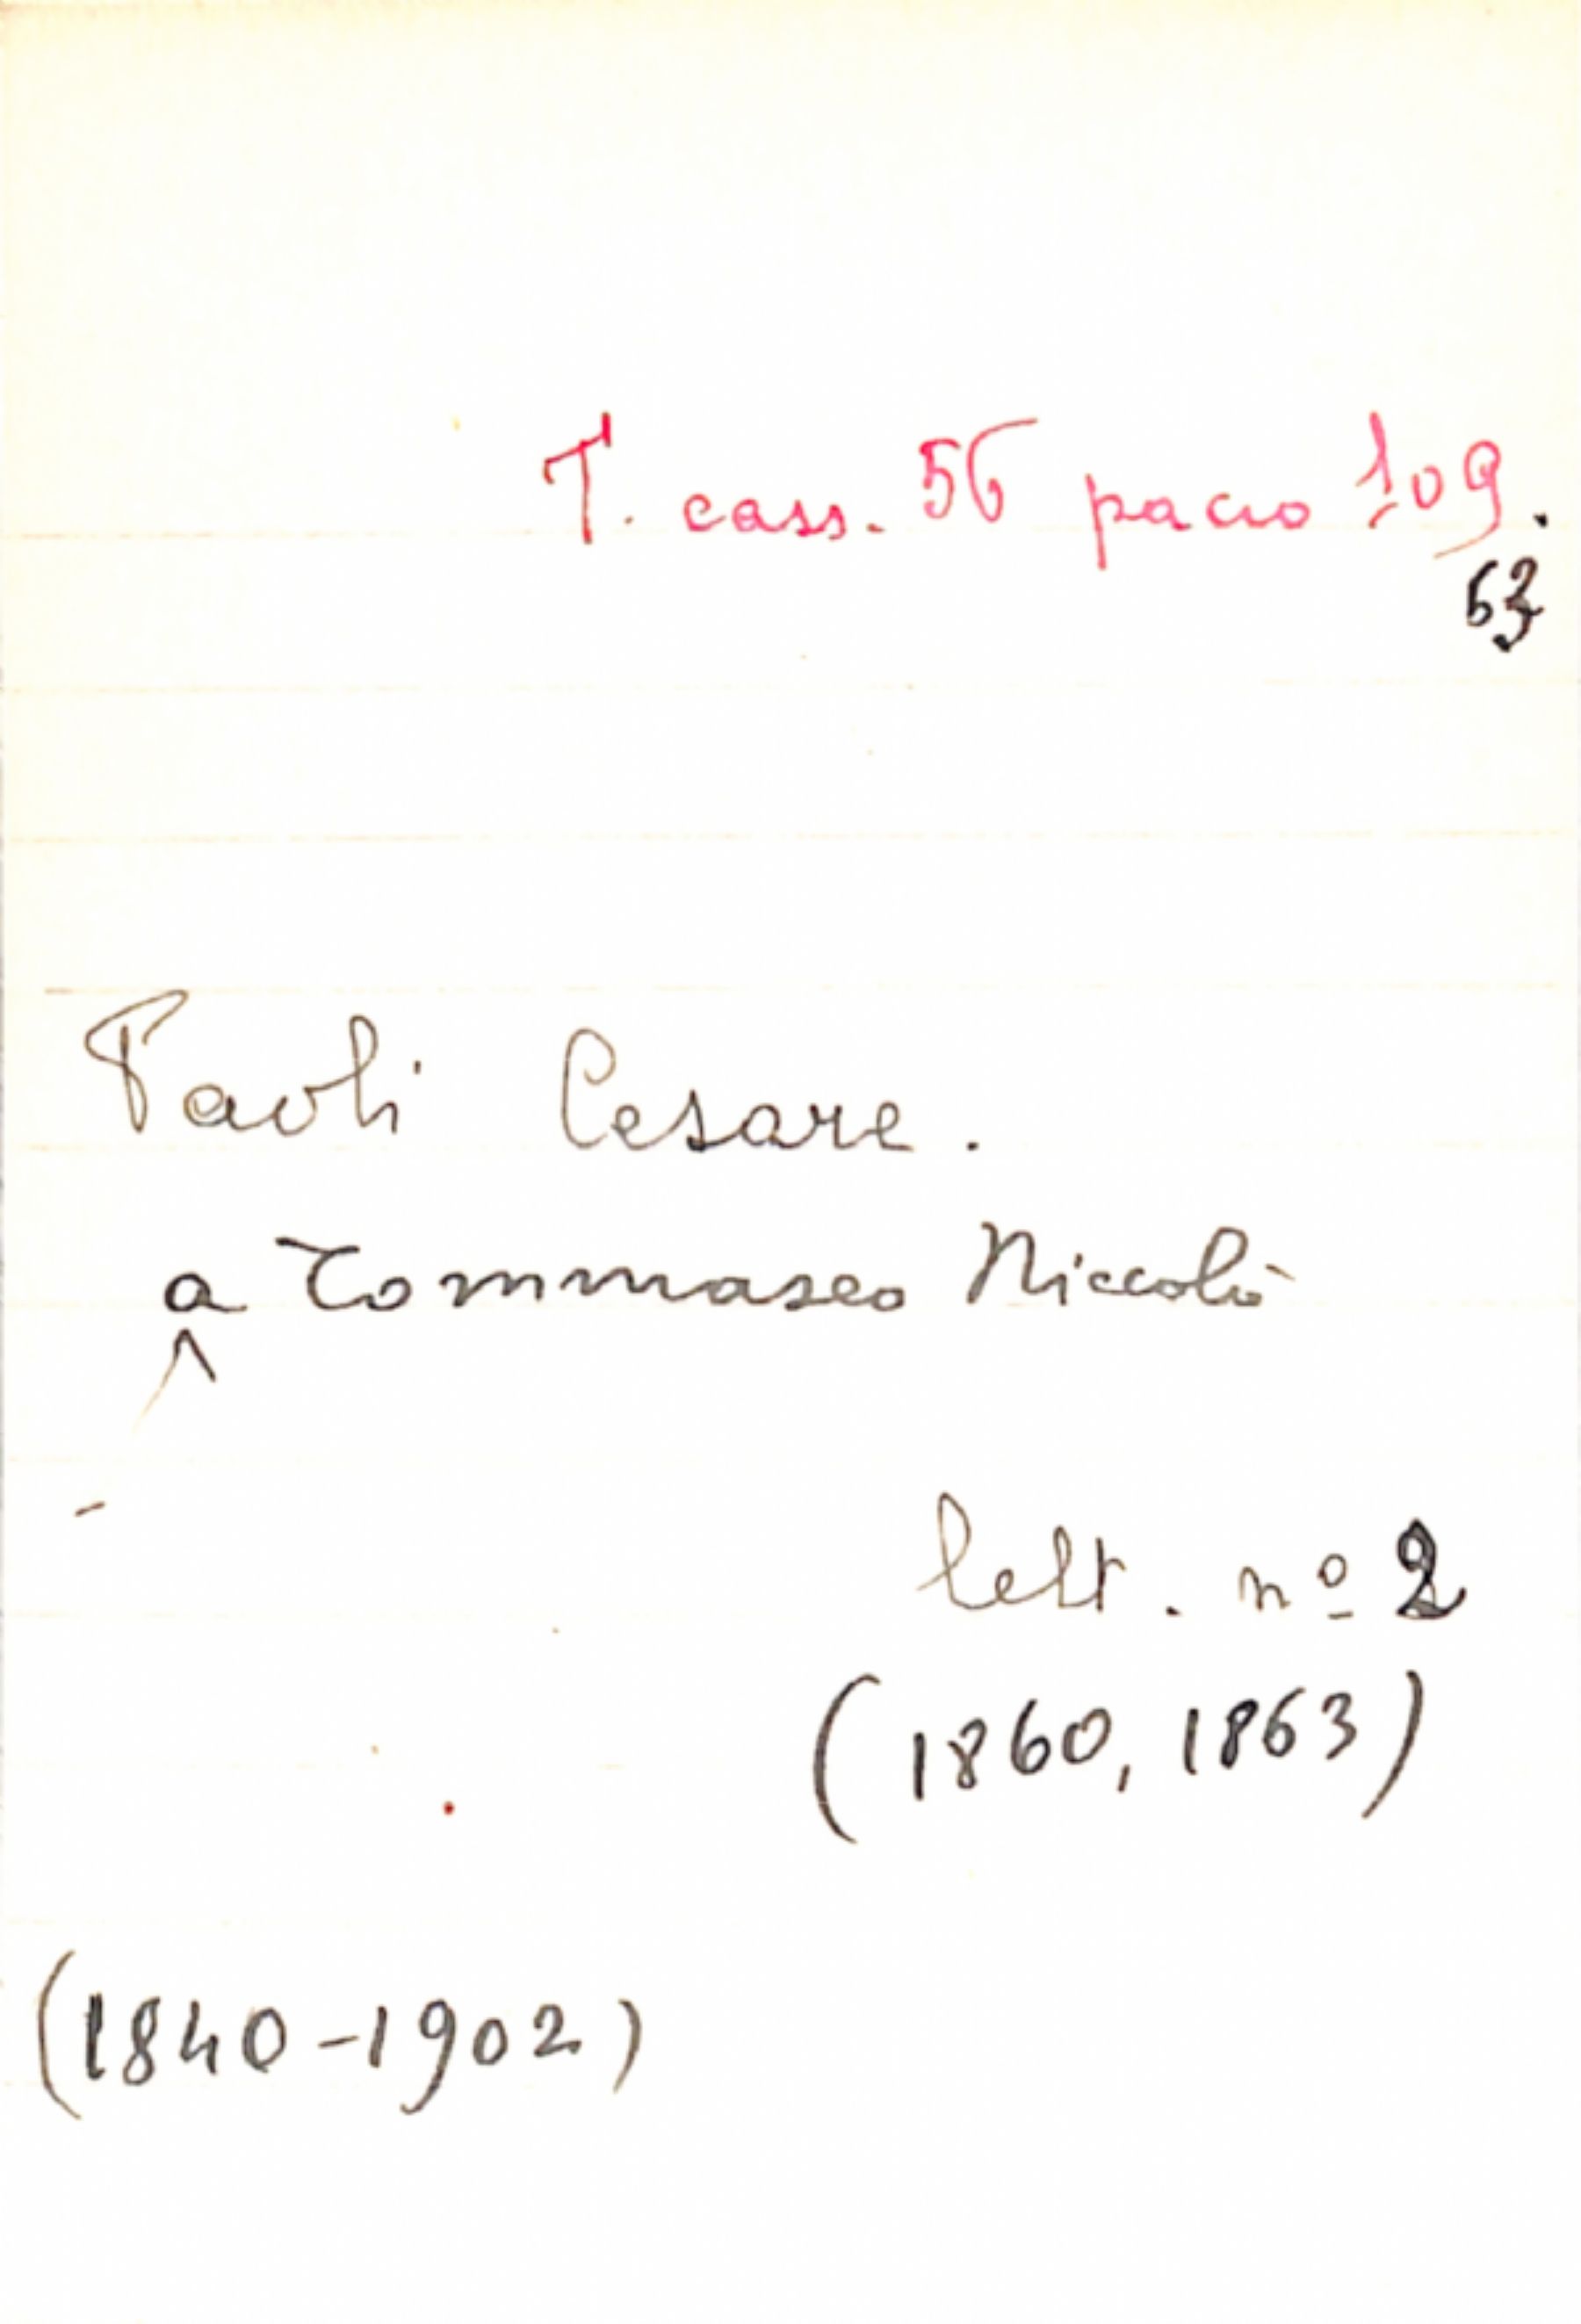 T. cass. 56 pacco 109.
63
Paoli Cesare.
a Tommaseo Niccolò
lett. nº 2
(1860, 1863)
(1840-1902)